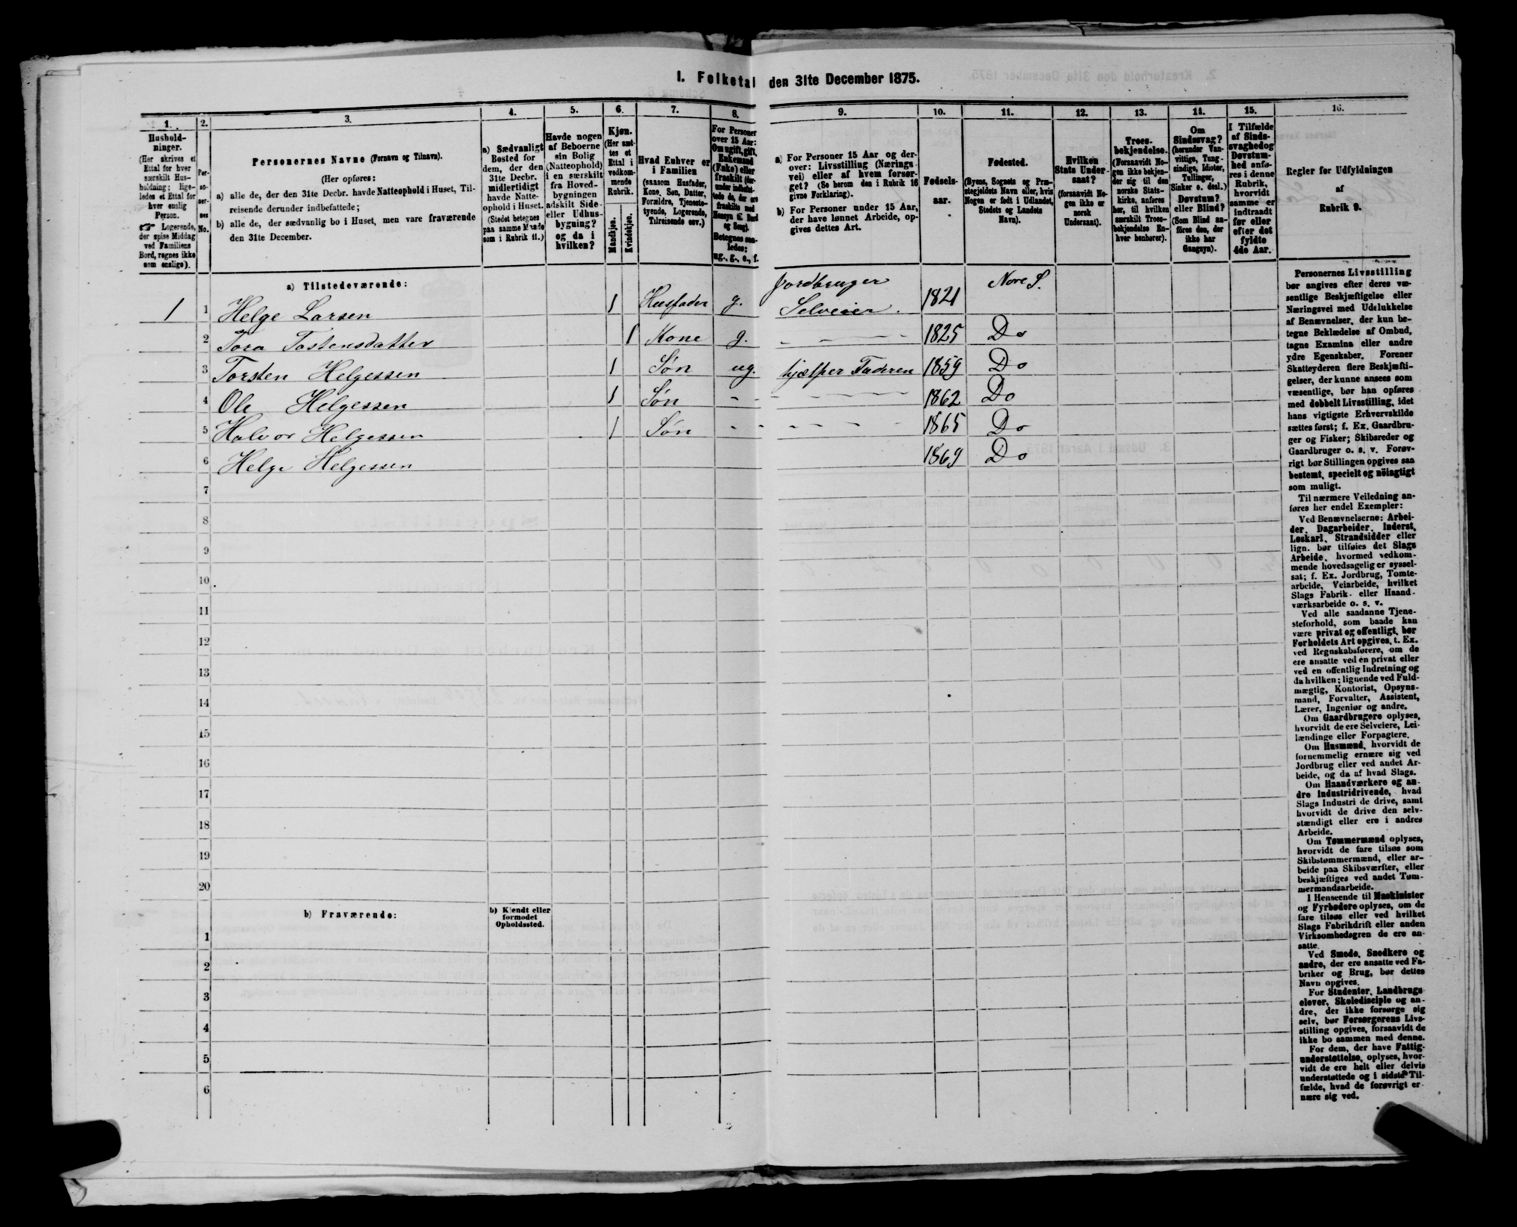 I. Folketal den 31te December 1875.
1. 2. 3. 4. 5. 6. 7. 8. 9. 10. 11. 12. 13. 14. 15. 16.
Hushold-
ninger.
(Her skrives et
Ettal for hver
særskilt Hus-
holdning; lige-
ledes et Ettal for
hver enslig
Person.
☞ Logerende,
der spise Middag
ved Familiens
Bord, regnes ikke
som enslige).
Per-
so-
ner-
nes
No.
Personernes Navne (Fornavn og Tilnavn).
(Her opføres:
a) alle de, der den 31te Decbr. havde Natteophold i Huset, Til-
reisende derunder indbefattede;
b) alle de, der sædvanlig bo i Huset, men vare fraværende
den 31te December.
a) Sædvanligt
Bosted for
dem, der den
31te Decbr.
midlertidigt
havde Natte-
ophold i Huset.
(Stedet betegnes
paa samme Maade
som i Rubrik 11.)
Havde nogen
af Beboerne
sin Bolig
(Natteophold)
i en særskilt
fra Hoved-
bygningen
adskilt Side-
eller Udhus-
bygning?
og da i
hvilken?
Kjøn.
(Her sæt-
tes et
Ettal i
vedkom-
mende
Rubrik.
Mandkjøn.
Kvindekjøn.
Hvad Enhver er
i Familien
(saasom Husfader,
Kone, Søn, Datter,
Forældre, Tjeneste-
tyende, Logerende,
Tilreisende osv.)
For Personer
over 15 Aar:
Om ugift, gift,
Enkemand
(Enke) eller
fraskilt
ug., g., e., f.
a) For Personer 15 Aar og der-
over: Livsstilling (Nærings-
vei) eller af hvem forsør-
get? (Se herom den i Rubrik 16
givne Forklaring).
b) For Personer under 15 Aar,
der have lønnet Arbeide, op-
gives dettes Art.
Fødsels-
aar.
Fødested.
(Byens, Sognets og Præ-
stegjeldets Navn eller, hvis
Nogen er født i Udlandet,
Stedets og Landets
Navn).
Hvilken
Stats Under-
saat?
(forsaavidt No-
gen ikke er
norsk
Undersaat).
Troes-
bekjendelse.
(Forsaavidt No-
gen ikke bekjen-
der sig til den
norske Stats-
kirke, anføres
her, til hvilken
særskilt Troes-
bekjendelse En-
hver henhører).
Om
Sindssvag?
(herunder Van-
vittige, Tung-
sindige, Idioter,
Tullinger,
Sinker o. desl.)
Døvstum?
eller Blind?
(Som Blind an-
føres den, der
ikke har
Gangsyn).
I Tilfælde
af Sinds-
svaghed og
Døvstum-
hed anfø-
res i denne
Rubrik,
hvorvidt
samme er
indtraadt
før eller
efter det
fyldte
4de Aar.
Regler for Udfyldningen
af
Rubrik 9.
a) Tilstedeværende:
1 1 Helge Larsen 1 Husfader g. Jordbruger Selveier. 1821 Nore S.
2 Tora Tostensdatter 1 Kone g. - - - - 1825 Do
3 Torsten Helgessen 1 Søn ug. hjælper Faderen 1859 Do
4 Ole Helgessen 1 Søn - - - - - 1862 Do
5 Halvor Helgessen 1 Søn - - - - - - 1865 Do
6 Helge Helgessen 1869 Do
7
8
9
10
11
12
13
14
15
16
17
18
19
20
b) Fraværende:
b) Kjendt eller
formodet
Opholdssted.
1
2
3
4
5
6
Personernes Livsstilling
bør angives efter deres væ-
sentlige Beskjæftigelse eller
Næringsvei med Udelukkelse
af Benævnelser, der kun be-
tegne Beklædelse af Ombud,
tagne Examina eller andre
ydre Egenskaber. Forener
Skatteyderen flere Beskjæfti-
gelser, der kunne ansees som
væsentlige, bør han opføres
med dobbelt Livsstilling, idet
hans vigtigste Erhvervskilde
sættes først; f. Ex. Gaardbru-
ger og Fisker; Skibsreder og
Gaardbruger o. s. v. Forøv-
rigt bør Stillingen opgives saa
bestemt, specielt og nøiagtigt
som muligt.
Til nærmere Veiledning an-
føres her endel Exempler:
Ved Benævnelserne: Arbei-
der, Dagarbeider, Inderst,
Løskarl, Strandsidder eller
lign. bør tilføies det Slags
Arbeide, hvormed vedkom-
mende hovedsagelig er syssel-
sat; f. Ex. Jordbrug, Tomte-
arbeide, Veiarbeide, hvilket
Slags Fabrik- eller Haand-
værksarbeide o. s. v.
Ved alle saadanne Tjene-
steforhold, som baade kan
være privat og offentligt, bør
Forholdets Art opgives, t. Ex.
ved Regnskabsførere, om de
ere ansatte ved en privat eller
ved en offentlig Indretning og
da hvilken; lignende ved Fuld-
mægtig, Kontorist, Opsyns-
mand, Forvalter, Assistent,
Lærer, Ingeniør og andre.
Om Gaardbrugere oplyses,
hvorvidt de ere Selveiere, Lei-
lændinge eller Forpagtere.
Om Husmænd, hvorvidt de
fornemmelig ernære sig ved
Jordbrug eller ved andet Ar-
beide, og da af hvad Slags.
Om Haandværkere og an-
dre Industridrivende, hvad
Slags Industri de drive, samt
hvorvidt de drive den selv-
stændigt eller ere i andres
Arbeide.
Om Tømmermænd oplyses,
hvorvidt de fare tilsøs som
Skibstømmermænd, eller ar-
beide paa Skibsværfter, eller
beskjæftiges ved andet Tøm-
mermandsarbeide.
I Henseende til Maskinister
og Fyrbødere oplyses, om de
fare tilsøs eller ved hvilket
Slags Fabrikdrift eller anden
Virksomhedsgren de ere an-
satte.
Ved Smede, Snedkere og
andre, der ere ansatte ved Fa-
briker og Brug, bør dettes
Navn opgives.
For Studenter, Landbrugs-
elever, Skoledisciple og an-
dre, der ikke forsørge sig
selv, bør Forsørgerens Livs-
stilling opgives, forsaavidt de
ikke bo sammen med denne.
For dem, der have Fattig-
understøttelse, oplyses, hvor-
vidt de ere helt eller delvis
understøttede og i sidste Til-
fælde, hvad de forøvrigt er-
nære sig ved.